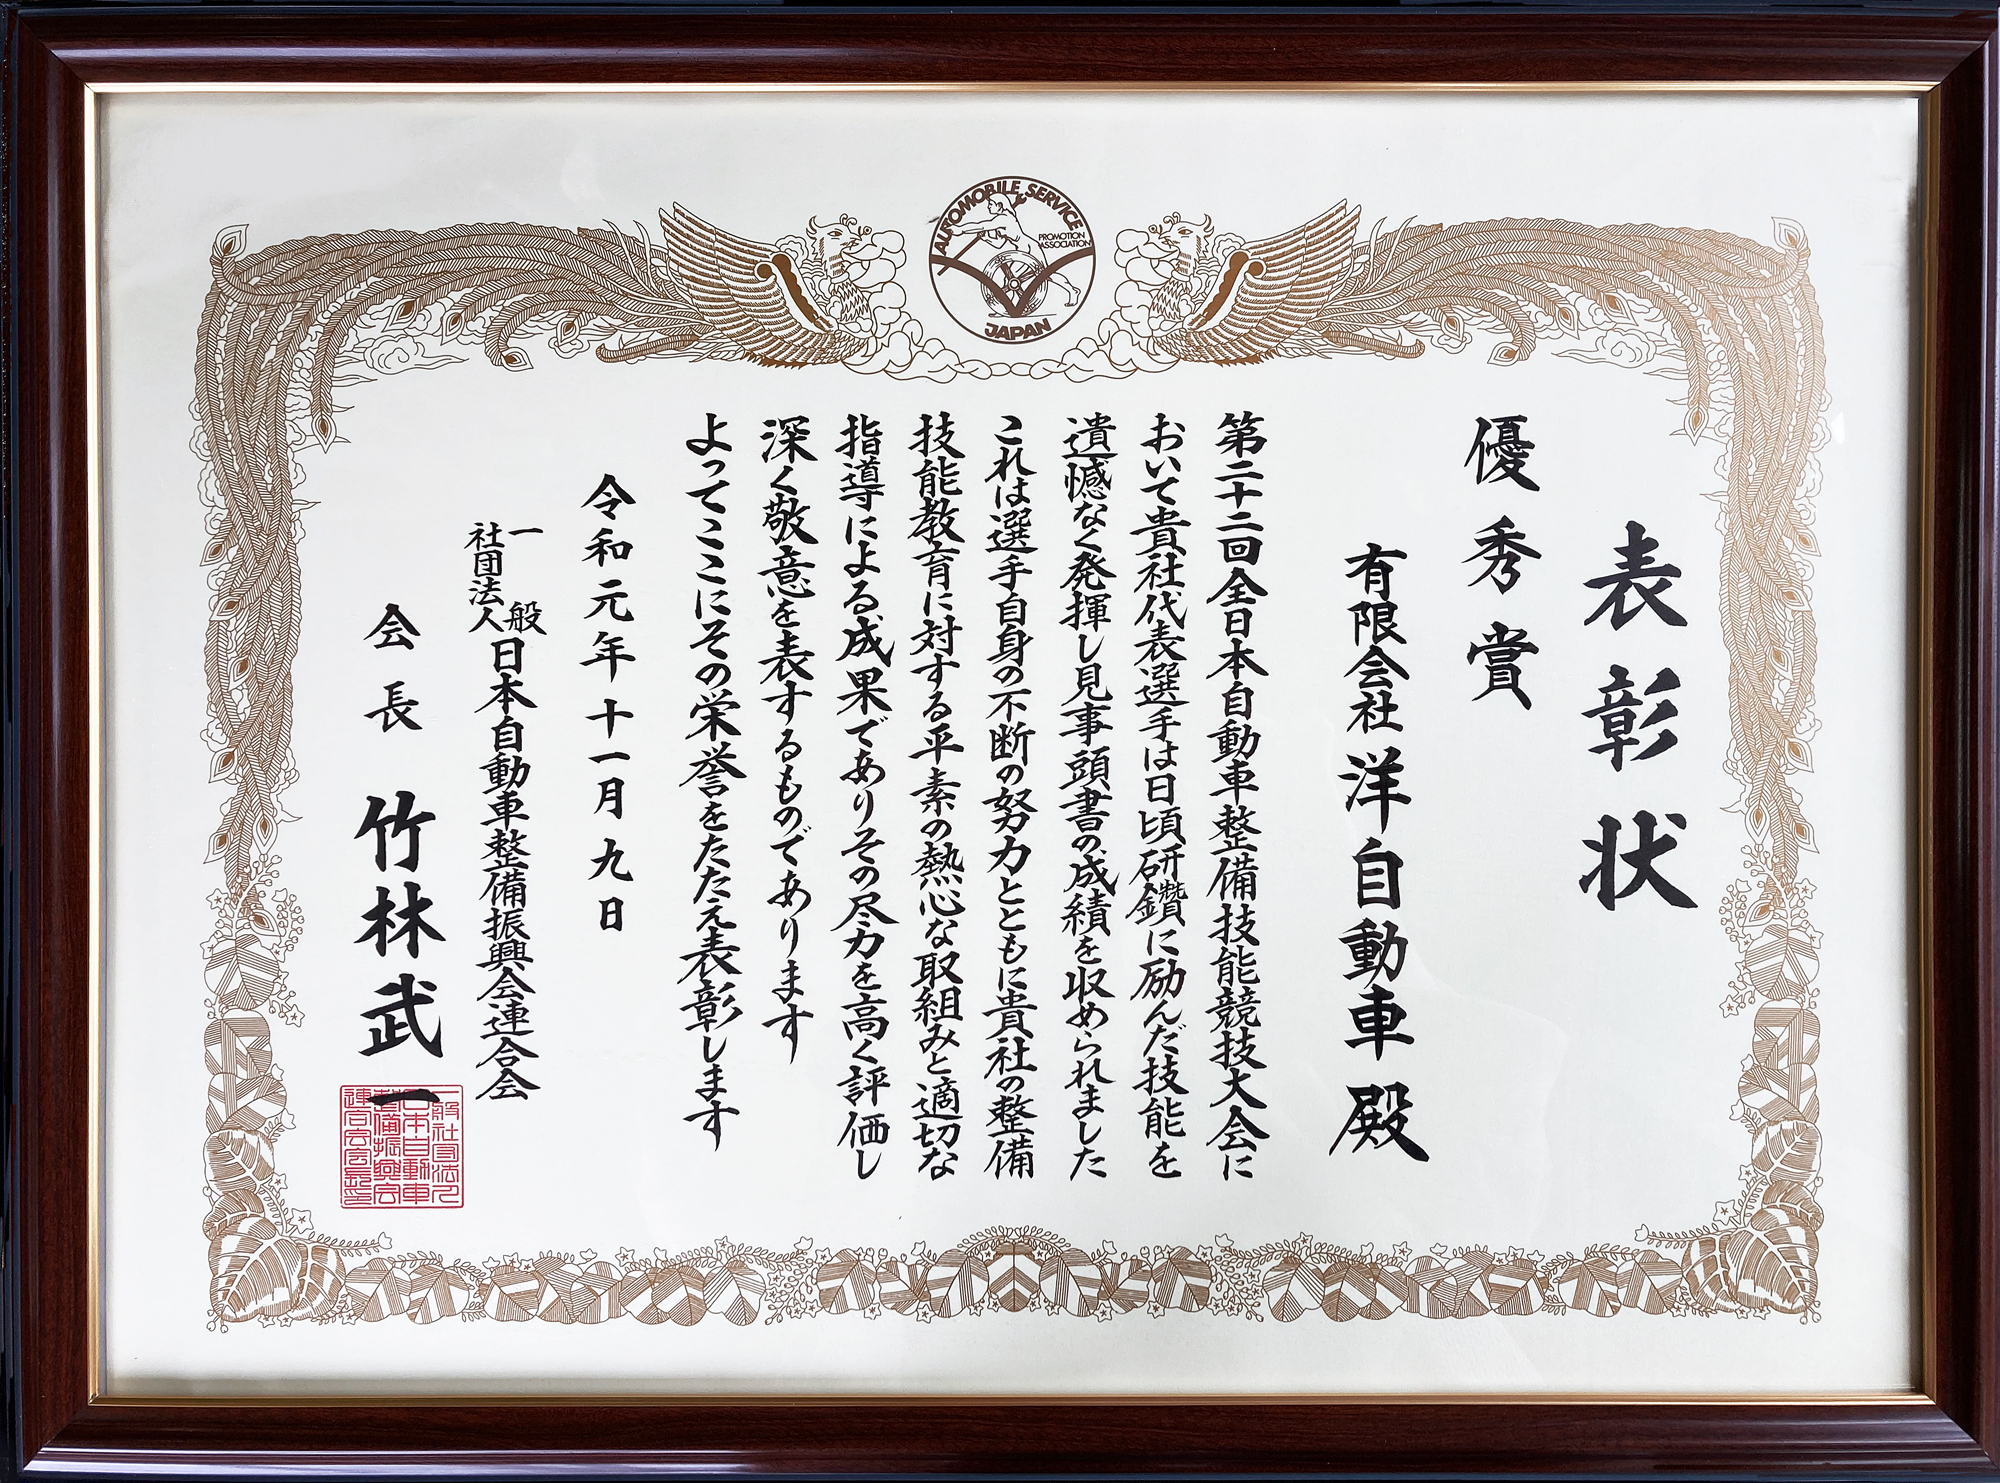 AUTOMOBILE SERVICE
PROMOTION
ASSOCIATION
JAPAN
表彰状
優秀賞
有限会社洋自動車殿
第二十二回全日本自動車整備技能競技大会に
おいて貴社代表選手は日頃研鑽に励んだ技能を
遺憾なく発揮し見事頭書の成績を収められました
これは選手自身の不断の努力とともに貴社の整備
技能教育に対する平素の熱心な取組みと適切な
指導による成果でありその尽力を高く評価し
深く敬意を表するものであります
よってここにその栄誉をたたえ表彰します
令和元年十一月九日
一般社団法人日本自動車整備振興会連合会
会長 竹林武一
一般社団法人
日本自動車
整備振興会
連合会会長印